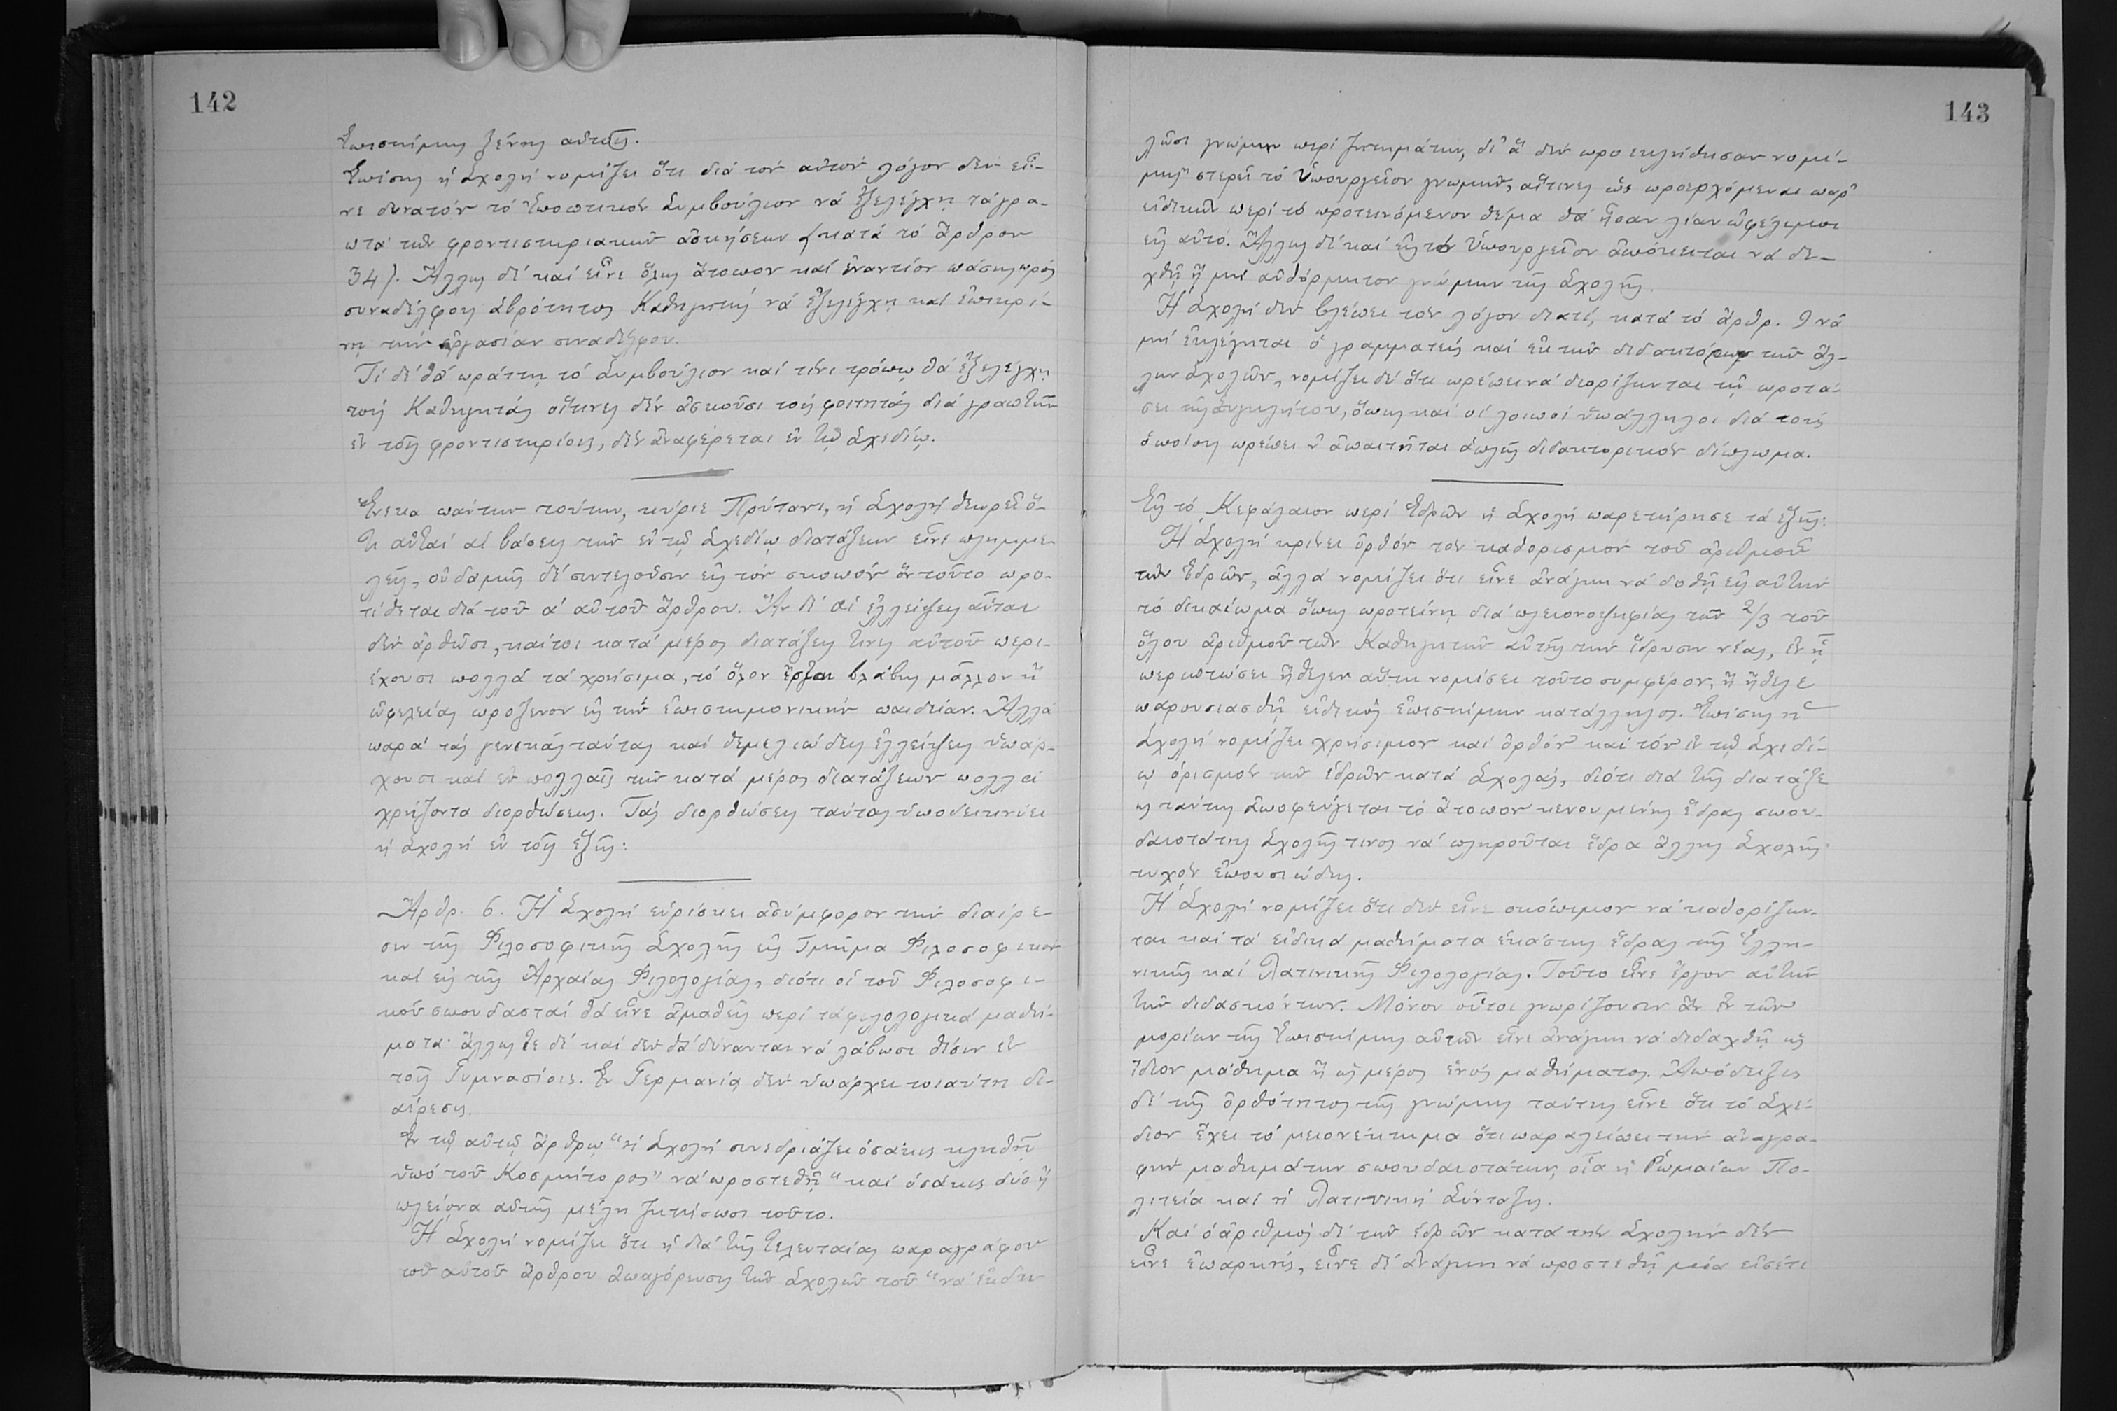 142
ἐπιστήμης ξένης αὐτοῖς.
Ἐπίσης ἡ Σχολή νομίζει ὅτι διά τόν αὐτόν λόγον δέν εἶ-
νε δυνατόν τό Ἐποπτικόν Συμβούλιον νά ἐξελέγχῃ τά γρα-
πτά τῶν φροντιστηριακῶν ἀσκήσεων (κατά τό ἄρθρον
34). Ἄλλως δέ καί εἶνε ὅλως ἄτοπον καί ἐναντίον πάσης πρός
συναδέλφους ἁβρότητος Καθηγητής νά ἐξελέγχῃ καί ἐπικρί-
νῃ τήν ἐργασίαν συναδέλφου.
Τί δέ θά πράττῃ τό Συμβούλιον καί τίνι τρόπῳ θά ἐξελέγχῃ
τούς Καθηγητάς οἵτινες δέν ἀσκοῦσι τούς φοιτητάς διά γραπτῶν
ἐν τοῖς φροντιστηρίοις, δέν ἀναφέρεται ἐν τῷ Σχεδίῳ.
Ἕνεκα πάντων τούτων, κύριε Πρύτανι, ἡ Σχολή θεωρεῖ ὅ-
τι αὗται αἱ βάσεις τῶν ἐν τῷ Σχεδίῳ διατάξεων εἶνε πλημμε-
λεῖς, οὐδαμῶς δέ συντελοῦσιν εἰς τόν σκοπόν ὅν τοῦτο προ-
τίθεται διά τοῦ α' αὐτοῦ ἄρθρου. Ἄν δέ αἱ ἐλλείψεις αὗται
δέν ἀρθῶσι, καίτοι κατά μέρος διατάξεις τινές αὐτοῦ περι-
έχουσι πολλά τά χρήσιμα, τό ὅλον ἔσται βλάβης μᾶλλον ἤ
ὠφελείας πρόξενον εἰς τήν ἐπιστημονικήν παιδείαν. Ἀλλά
παρά τάς γενικάς ταύτας καί θεμελιώδεις ἐλλείψεις ὑπάρ-
χουσι καί ἐν πολλαῖς τῶν κατά μέρος διατάξεων πολλαί
χρῄζοντα διορθώσεως. Τάς διορθώσεις ταύτας ὑποδεικνύει
ἡ Σχολή ἐν τοῖς ἑξῆς:
Ἄρθρ. 6. Ἡ Σχολή εὑρίσκει ἀσύμφορον τήν διαίρε-
σιν τῆς Φιλοσοφικῆς Σχολῆς εἰς Τμῆμα Φιλοσοφικόν
καί εἰς τῆς Ἀρχαίας Φιλολογίας, διότι οἱ τοῦ Φιλοσοφι-
κοῦ σπουδασταί θά εἶνε ἀμαθεῖς περί τά φιλολογικά μαθή-
ματα· ἄλλως τε δέ καί δέν θά δύνανται νά λάβωσι θέσιν ἐν
τοῖς Γυμνασίοις. Ἐν Γερμανίᾳ δέν ὑπάρχει τοιαύτη δι-
αίρεσις.
Ἐν τῷ αὐτῷ ἄρθρῳ "ἡ Σχολή συνεδριάζει ὁσάκις κληθῇ
ὑπό τοῦ Κοσμήτορος" νά προστεθῇ "καί ὁσάκις δύο ἤ
πλείονα αὐτῆς μέλη ζητήσωσι τοῦτο.
Ἡ Σχολή νομίζει ὅτι ἡ διά τῆς τελευταίας παραγράφου
τοῦ αὐτοῦ ἄρθρου ἀπαγόρευσις τῶν Σχολῶν τοῦ "νά ἐκδη-
143
λῶσι γνώμην περί ζητημάτων, δι' ἅ δέν προεκλήθησαν νομί-
μως" στερεῖ τό Ὑπουργεῖον γνωμῶν, αἵτινες ὡς προερχόμεναι παρ'
εἰδικῶν περί τό προτεινόμενον θέμα θά ἦσαν λίαν ὠφέλιμοι
εἰς αὐτό. Ἄλλως δέ καί εἰς τό Ὑπουργεῖον ἀπόκειται νά δε-
χθῇ ἤ μή αὐθόρμητον γνώμην τῆς Σχολῆς.
Ἡ Σχολή δέν βλέπει τόν λόγον διατί, κατά τό ἄρθρ. 9 νά
μή ἐκλέγηται ὁ γραμματεύς καί ἐκ τῶν διδακτόρων τῶν ἄλ-
λων Σχολῶν, νομίζει δέ ὅτι πρέπει νά διορίζωνται τῇ προτά-
σει τῆς Συγκλήτου, ὅπως καί οἱ λοιποί ὑπάλληλοι διά τούς
ὁποίους πρέπει ν' ἀπαιτῆται ἁπλῶς διδακτορικόν δίπλωμα.
Εἰς τό Κεφάλαιον περί Ἑδρῶν ἡ Σχολή παρετήρησε τά ἑξῆς:
Ἡ Σχολή κρίνει ὀρθόν τόν καθορισμόν τοῦ ἀριθμοῦ
τῶν Ἑδρῶν, ἀλλά νομίζει ὅτι εἶνε ἀνάγκη νά δοθῇ εἰς αὐτήν
τό δικαίωμα ὅπως προτείνῃ διά πλειονοψηφίας τῶν 2/3 τοῦ
ὅλου ἀριθμοῦ τῶν Καθηγητῶν αὐτῆς τήν ἵδρυσιν νέας, ἐν ᾗ
περιπτώσει ἤθελεν αὕτη νομίσει τοῦτο συμφέρον, ἤ ἤθελε
παρουσιασθῇ εἰδικός ἐπιστήμων κατάλληλος. Ἐπίσης ἡ
Σχολή νομίζει χρήσιμον καί ὀρθόν καί τόν ἐν τῷ Σχεδί-
ῳ ὁρισμόν τῶν ἑδρῶν κατά Σχολάς, διότι διά τῆς διατάξε
ως ταύτης ἀποφεύγεται τό ἄτοπον κενουμένης ἕδρας σπου-
δαιοτάτης Σχολῆς τινος νά πληροῦται ἕδρα ἄλλης Σχολῆς
τυχόν ἐπουσιώδης.
Ἡ Σχολή νομίζει ὅτι δέν εἶνε σκόπιμον νά καθορίζων-
ται καί τά εἰδικά μαθήματα ἑκάστης ἕδρας τῆς Ἑλλη-
νικῆς καί Λατινικῆς Φιλολογίας. Τοῦτο εἶνε ἔργον αὐτῶν
τῶν διδασκόντων. Μόνον οὗτοι γνωρίζουσιν ἄν ἕν τῶν
μορίων τῆς ἐπιστήμης αὐτῶν εἶνε ἀνάγκη νά διδαχθῇ ὡς
ἴδιον μάθημα ἤ ὡς μέρος ἑνός μαθήματος. Ἀπόδειξις
δέ τῆς ὀρθότητος τῆς γνώμης ταύτης εἶνε ὅτι τό Σχέ-
διον ἔχει τό μειονέκτημα ὅτι παραλείπει τήν ἀναγρα-
φήν μαθημάτων σπουδαιοτάτων, οἷα ἡ Ῥωμαίων Πο-
λιτεία καί ἡ Λατινική Σύνταξις.
Καί ὁ ἀριθμός δέ τῶν ἑδρῶν κατά τήν Σχολήν δέν
εἶνε ἐπαρκής, εἶνε δέ ἀνάγκη νά προστεθῇ μία εἰσέτι